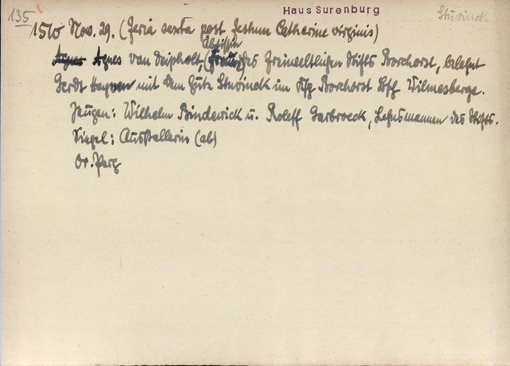 135
Haus Surenburg
Studinck
1510 Nov. 29. (feria sexta post festum Catherine virginis)
Äbtissin
Agnes von Deipholt, des freiweltlichen Stifts Borchorst, belehnt
Gerdt Heyven mit dem Gute Studinck im Ksp Borchorst Bsch Wilmesberge.
Zeugen: Wilhelm Binderick u. Roleff Garbrock, Lehnsmannen des Stifts.
Siegel: Ausstellerin (ab)
Or. Perg